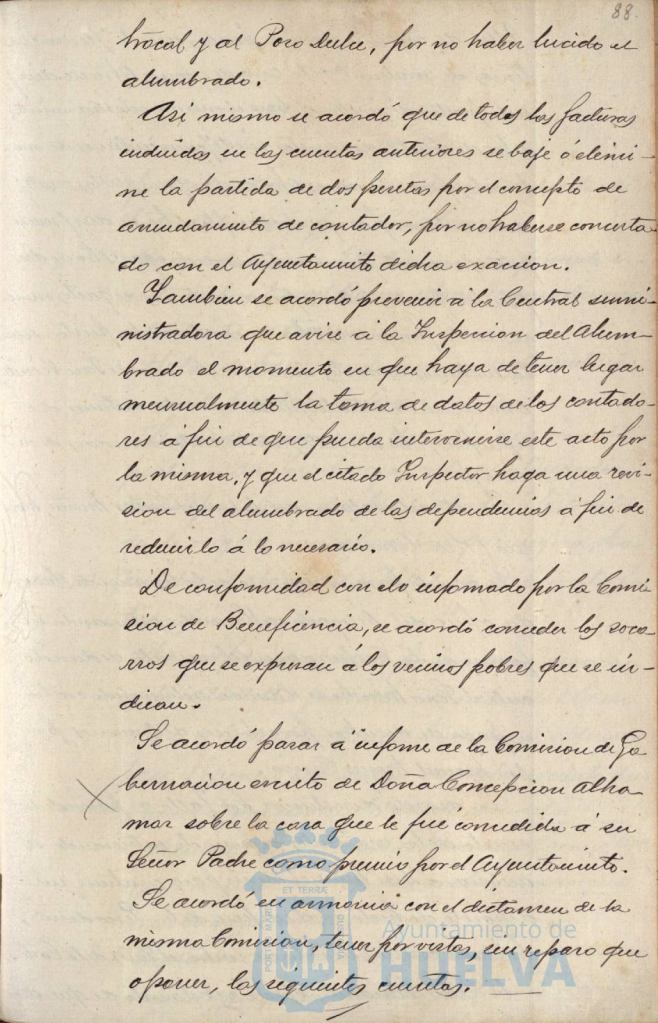 88.
trócal y al Pozo Dulce, por no haber lucido el
alumbrado.
Asi mismo se acordó que de todas las facturas
incluidas en las cuentas anteriores se baje ó elimi-
ne la partida de dos pesetas por el concepto de
arrendamiento de contador, por no haberse concerta-
do con el Ayuntamiento dicha exaccion.
Tambien se acordó prevenir á la Central sumi-
nistradora que avise á la Inspeccion del Alum-
brado el momento en que haya de tener lugar
mensualmente la toma de datos de los contado-
res á fin de que pueda intervenirse este acto por
la misma, y que el citado Inspector haga una revi-
sion del alumbrado de las dependencias á fin de
reducirlo á lo necesario.
De conformidad con lo informado por la Comi-
sion de Beneficencia, se acordó conceder los soco-
rros que se expresan á los vecinos pobres que se in-
dican.
Se acordó pasar á informe de la Comision de Go-
bernacion escrito de Doña Concepcion Alha-
mar sobre la casa que le fué concedida á su
Señor Padre como premio por el Ayuntamiento.
Se acordó en armonia con el dictamen de la
misma Comision, tener por vistas, sin reparo que
oponer, las siguientes cuentas.
ET TERRÆ
PORTUS MARIS
CUSTODIA
Ayuntamiento de
HUELVA